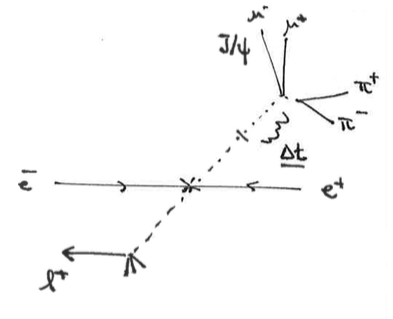 μ⁻ μ⁺
J/ψ
π⁺
π⁻
Δt
e⁻ e⁺
l⁺